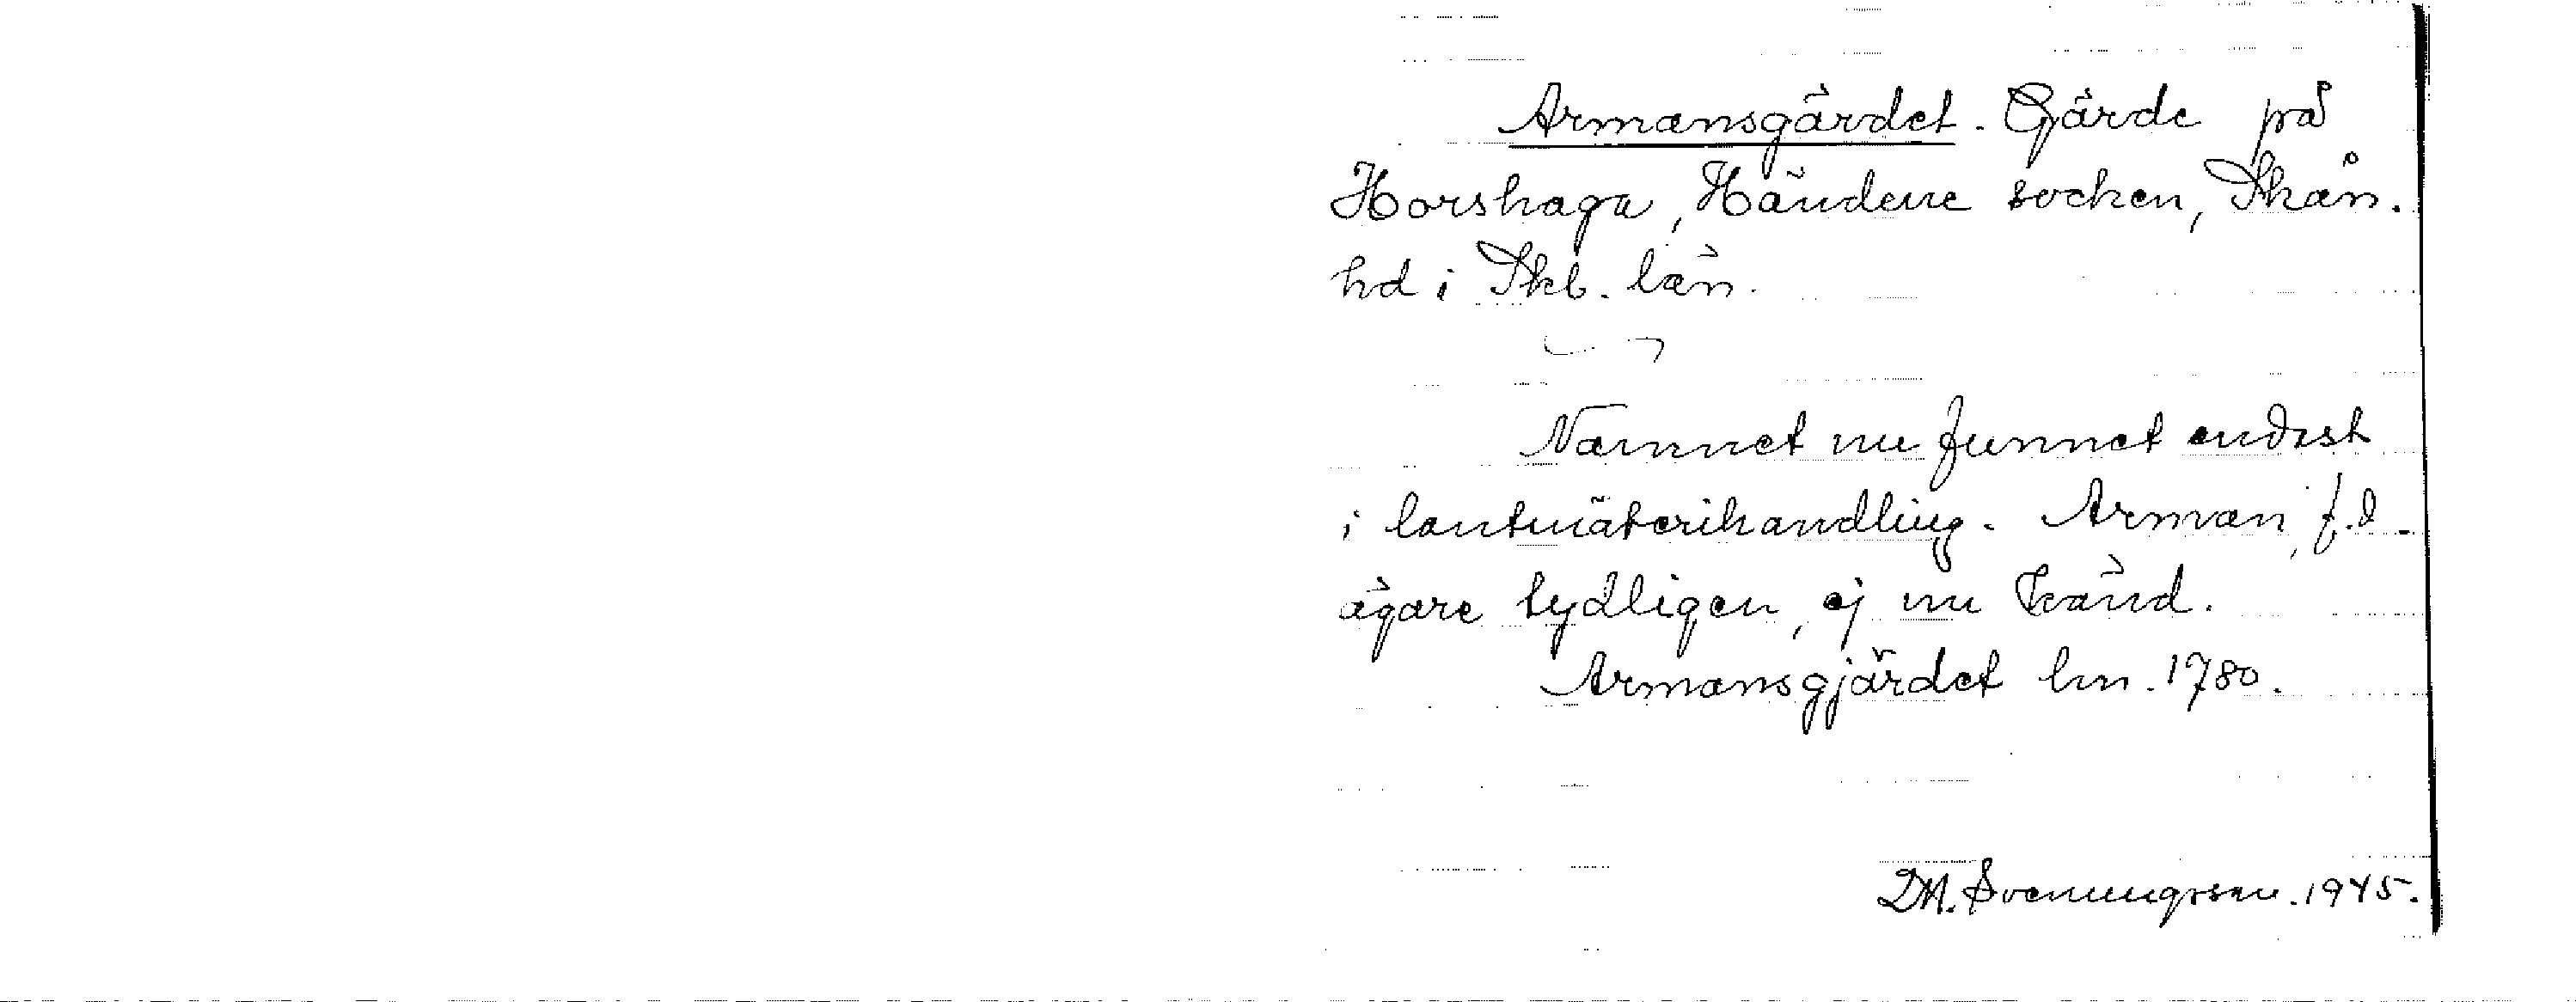 Armansgärdet. Gärde på
Horshaga, Händene socken, Skån.
hd i Skb. län.
Namnet nu funnet endast
i lantmäterihandling. Arman, f.d.
ägare tydligen, ej nu känd.
Armansgjärdet lm. 1780.
D.A. Svenungsson. 1945.